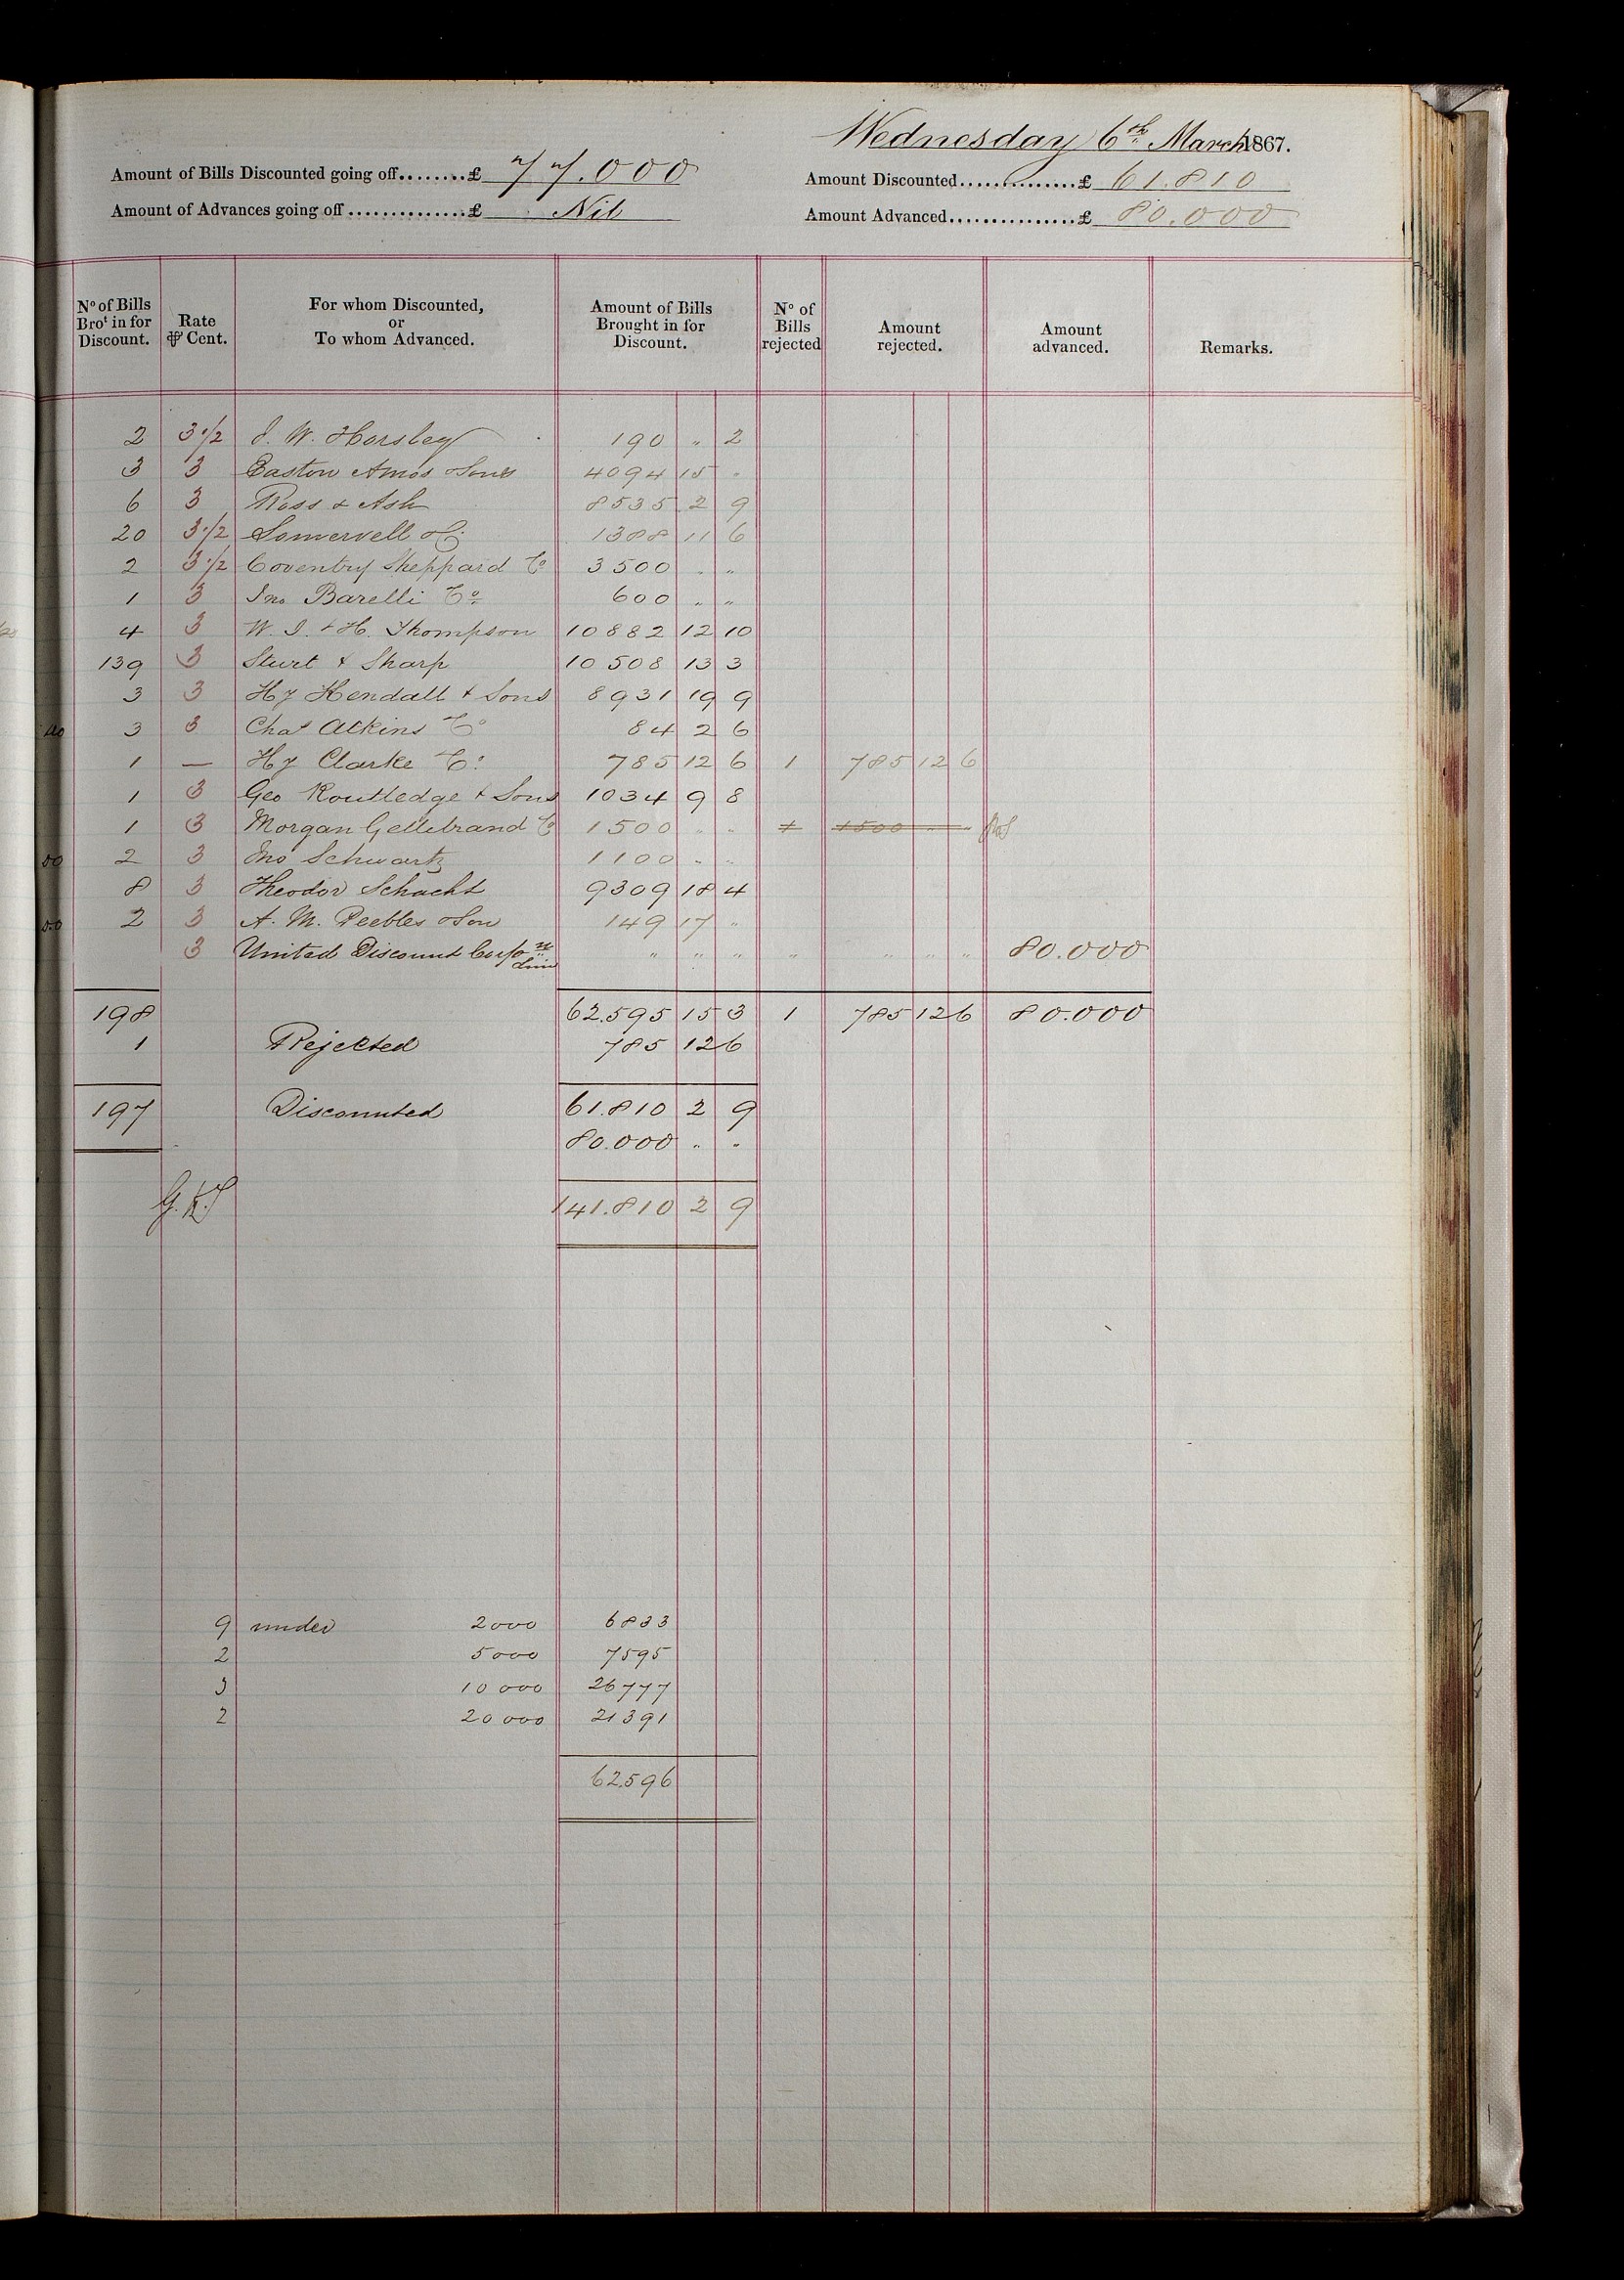 Wednesday 6th March 1867.
Amount of Bills Discounted going off........£ 77.000 Amount Discounted...............£ 61.810
Amount of Advances going off...............£ Nil Amount Advanced................£ 80.000
No of Bills Brot in for Discount. Rate ⅌ Cent. For whom Discounted, or To whom Advanced. Amount of Bills Brought in for Discount. No of Bills rejected Amount rejected. Amount advanced. Remarks.
2 3 1/2 J. W. Horsley 190 " 2
3 3 Easton Amos & Sons 4094 15 "
6 3 Ross & Ash 8535 2 9
20 3 1/2 Somervell & Co 1388 11 6
2 3 1/2 Coventry Sheppard Co 3500 " "
1 3 Jno Barelli Co 600 " "
4 3 W. J. & H. Thompson 10882 12 10
139 3 Sturt & Sharp 10508 13 3
3 3 Hy Kendall & Sons 8931 19 9
3 3 Chas Atkins Co 84 2 6
1 — Hy Clarke Co 785 12 6 1 785 12 6
1 3 Geo Routledge & Sons 1034 9 8
1 3 Morgan Gellibrand Co 1500 " " 1 1500 " "
2 3 Jno Schwartz 1100 " "
8 3 Theodor Schacht 9309 18 4
2 3 A. M. Peebles & Son 149 17 "
3 United Discount Corpon Lim " " " " " " " 80.000
198 62.595 15 3 1 785 12 6 80.000
1 Rejected 785 12 6
197 Discounted 61.810 2 9
80.000 " "
141.810 2 9
9 under 2000 6833
2 5000 7595
3 10000 26777
2 20000 21391
62.596